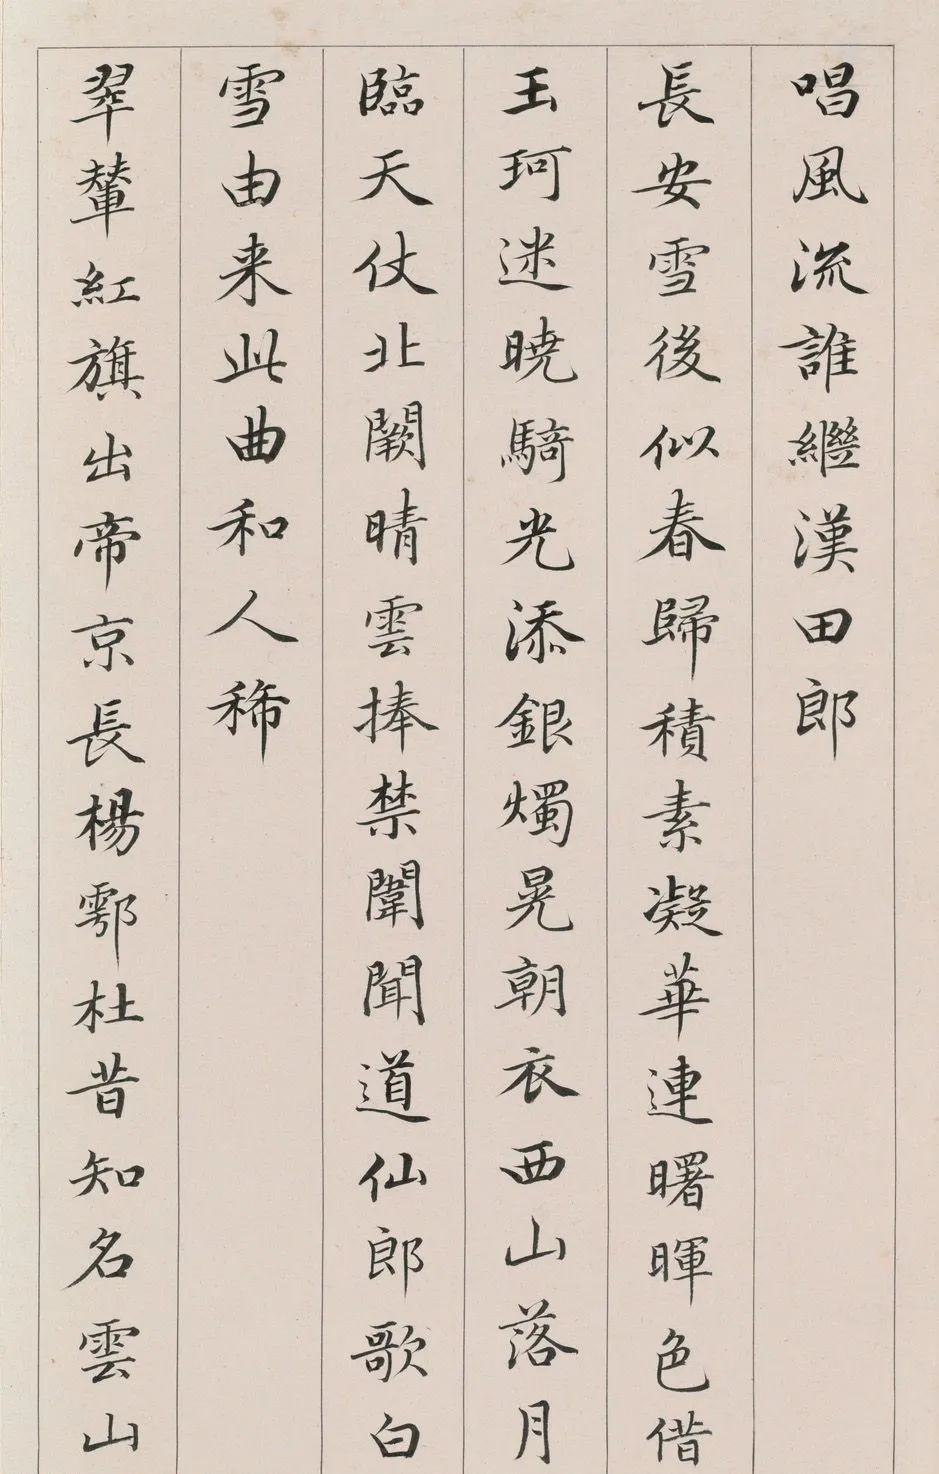 唱風流誰繼漢田郎
長安雪後似春歸積素凝華連曙暉色借
玉珂迷曉騎光添銀燭晃朝衣西山落月
臨天仗北闕晴雲捧禁闈聞道仙郎歌白
雪由来此曲和人稀
翠輦紅旗出帝京長楊鄠杜昔知名雲山